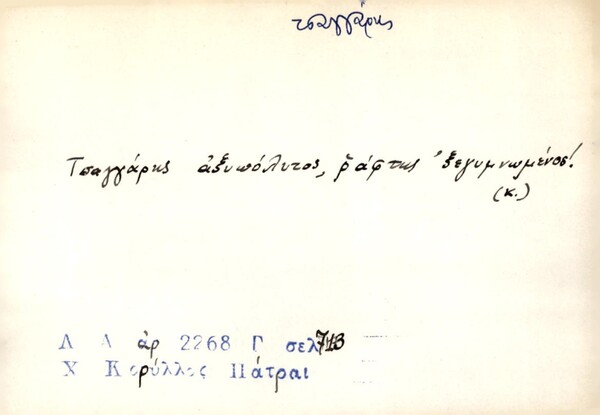 τσαγγάρης
Τσαγγάρης ἀξυπόλυτος, ῥάφτης ξεγυμνωμένος!
(κ.)
Λ Α ἀρ 2268 Γ σελ 713
Χ Κορύλλος Πάτραι